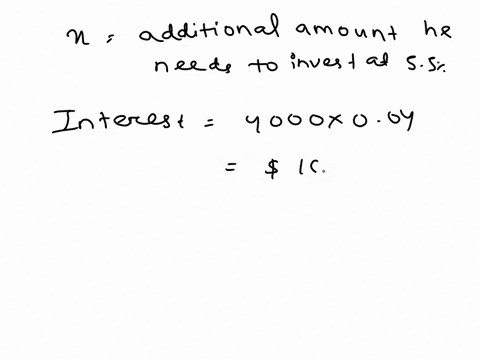 x = additional amount he
needs to invest at 5.5%
Interest = 4000 x 0.04
= $ 16